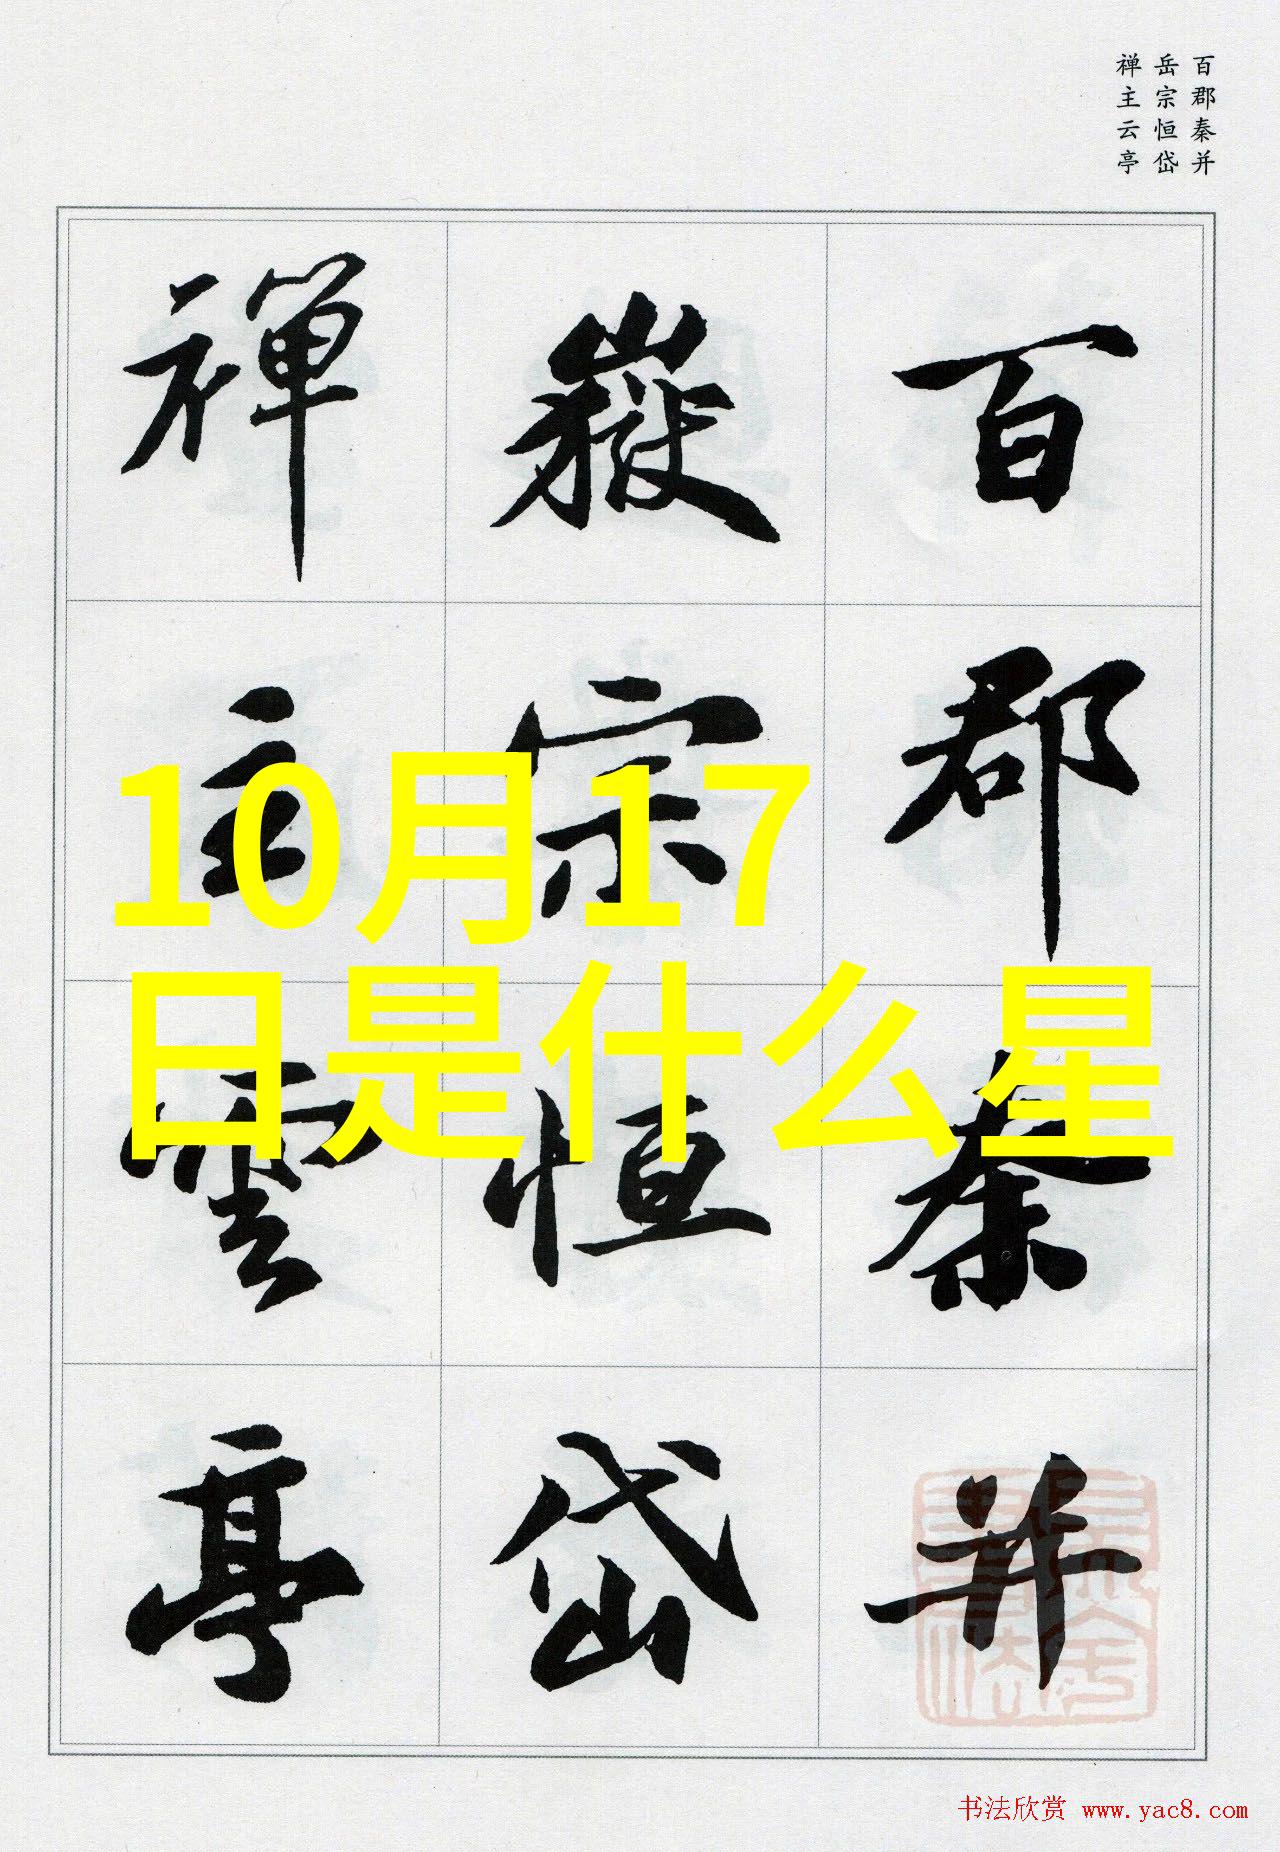 百郡秦并
岳宗恒岱
禅主云亭
百郡秦并
嶽宗恒岱
禅主雲亭
10月17
日是什么星
书法欣赏 www.yac8.com